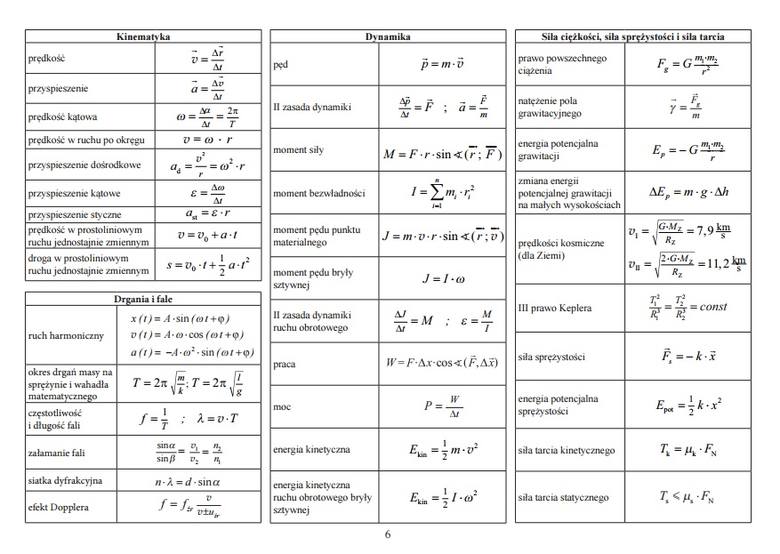 Kinematyka
prędkość
\vec{v} = \frac{\Delta \vec{r}}{\Delta t}
przyspieszenie
\vec{a} = \frac{\Delta \vec{v}}{\Delta t}
prędkość kątowa
ω = \frac{\Delta α}{\Delta t} = \frac{2π}{T}
prędkość w ruchu po okręgu
v = ω · r
przyspieszenie dośrodkowe
a_d = \frac{v^2}{r} = ω^2 · r
przyspieszenie kątowe
ε = \frac{\Delta ω}{\Delta t}
przyspieszenie styczne
a_{st} = ε · r
prędkość w prostoliniowym
ruchu jednostajnie zmiennym
v = v_0 + a · t
droga w prostoliniowym
ruchu jednostajnie zmiennym
s = v_0 · t + \frac{1}{2} a · t^2
Drgania i fale
ruch harmoniczny
x(t) = A · sin(ωt + φ)
v(t) = A · ω · cos(ωt + φ)
a(t) = −A · ω^2 · sin(ωt + φ)
okres drgań masy na
sprężynie i wahadła
matematycznego
T = 2π \sqrt{\frac{m}{k}} ; T = 2π \sqrt{\frac{l}{g}}
częstotliwość
i długość fali
f = \frac{1}{T} ; λ = v · T
załamanie fali
\frac{sin α}{sin β} = \frac{v_1}{v_2} = \frac{n_2}{n_1}
siatka dyfrakcyjna
n · λ = d · sin α
efekt Dopplera
f = f_{źr} \frac{v}{v ± u_{źr}}
Dynamika
pęd
\vec{p} = m · \vec{v}
II zasada dynamiki
\frac{\Delta \vec{p}}{\Delta t} = \vec{F} ; \vec{a} = \frac{\vec{F}}{m}
moment siły
M = F · r · sin ∢(\vec{r} ; \vec{F})
moment bezwładności
I = \sum_{i=1}^{n} m_i · r_i^2
moment pędu punktu
materialnego
J = m · v · r · sin ∢(\vec{r} ; \vec{v})
moment pędu bryły
sztywnej
J = I · ω
II zasada dynamiki
ruchu obrotowego
\frac{\Delta J}{\Delta t} = M ; ε = \frac{M}{I}
praca
W = F · Δx · cos ∢(\vec{F}, Δ\vec{x})
moc
P = \frac{W}{\Delta t}
energia kinetyczna
E_{kin} = \frac{1}{2} m · v^2
energia kinetyczna
ruchu obrotowego bryły
sztywnej
E_{kin} = \frac{1}{2} I · ω^2
Siła ciężkości, siła sprężystości i siła tarcia
prawo powszechnego
ciążenia
F_g = G \frac{m_1 · m_2}{r^2}
natężenie pola
grawitacyjnego
\vec{γ} = \frac{\vec{F}_g}{m}
energia potencjalna
grawitacji
E_p = − G \frac{m_1 · m_2}{r}
zmiana energii
potencjalnej grawitacji
na małych wysokościach
ΔE_p = m · g · Δh
prędkości kosmiczne
(dla Ziemi)
v_I = \sqrt{\frac{G · M_Z}{R_Z}} = 7,9 \frac{km}{s}
v_{II} = \sqrt{\frac{2 · G · M_Z}{R_Z}} = 11,2 \frac{km}{s}
III prawo Keplera
\frac{T_1^2}{R_1^3} = \frac{T_2^2}{R_2^3} = const
siła sprężystości
\vec{F}_s = − k · \vec{x}
energia potencjalna
sprężystości
E_{pot} = \frac{1}{2} k · x^2
siła tarcia kinetycznego
T_k = μ_k · F_N
siła tarcia statycznego
T_s ⩽ μ_s · F_N
6